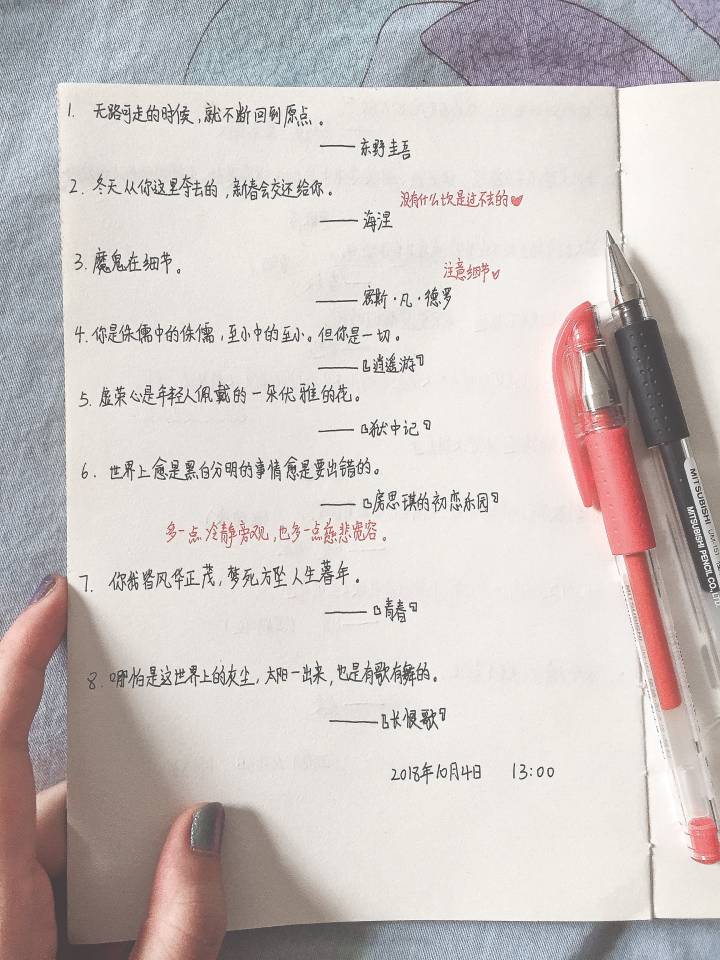 1. 无路可走的时候,就不断回到原点。
——东野圭吾
2. 冬天从你这里夺去的,新春会交还给你。
没有什么坎是过不去的
——海涅
3. 魔鬼在细节。
注意细节
——密斯·凡·德罗
4. 你是侏儒中的侏儒,至小中的至小。但你是一切。
——『逍遥游』
5. 虚荣心是年轻人佩戴的一朵优雅的花。
——『狱中记』
6. 世界上愈是黑白分明的事情愈是要出错的。
——『房思琪的初恋乐园』
多一点冷静旁观,也多一点慈悲宽容。
7. 你我皆风华正茂,梦死方坠人生暮年。
——『青春』
8. 哪怕是这世界上的灰尘,太阳一出来,也是有歌有舞的。
——『长恨歌』
2018年10月4日 13:00
MITSUBISHI
MITSUBISHI PENCIL CO.,LTD